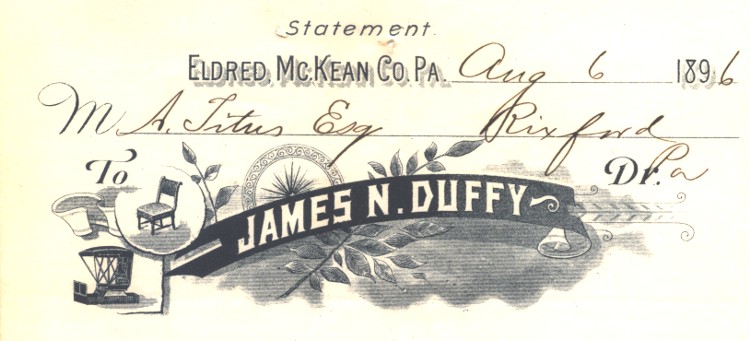 Statement.
ELDRED, McKEAN CO. PA. Aug 6 1896
M A. Titus Esq Rixford Pa
To Dr.
JAMES N. DUFFY